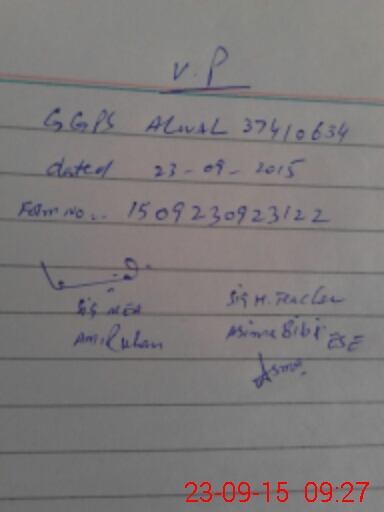 V.P
GGPS ALWAL 37410634
dated 23-09-2015
Form No.. 1509230923122
Sig MEA
Sig H. Teacher
Amir Khan
Asima Bibi ESE
Asma
23-09-15 09:27